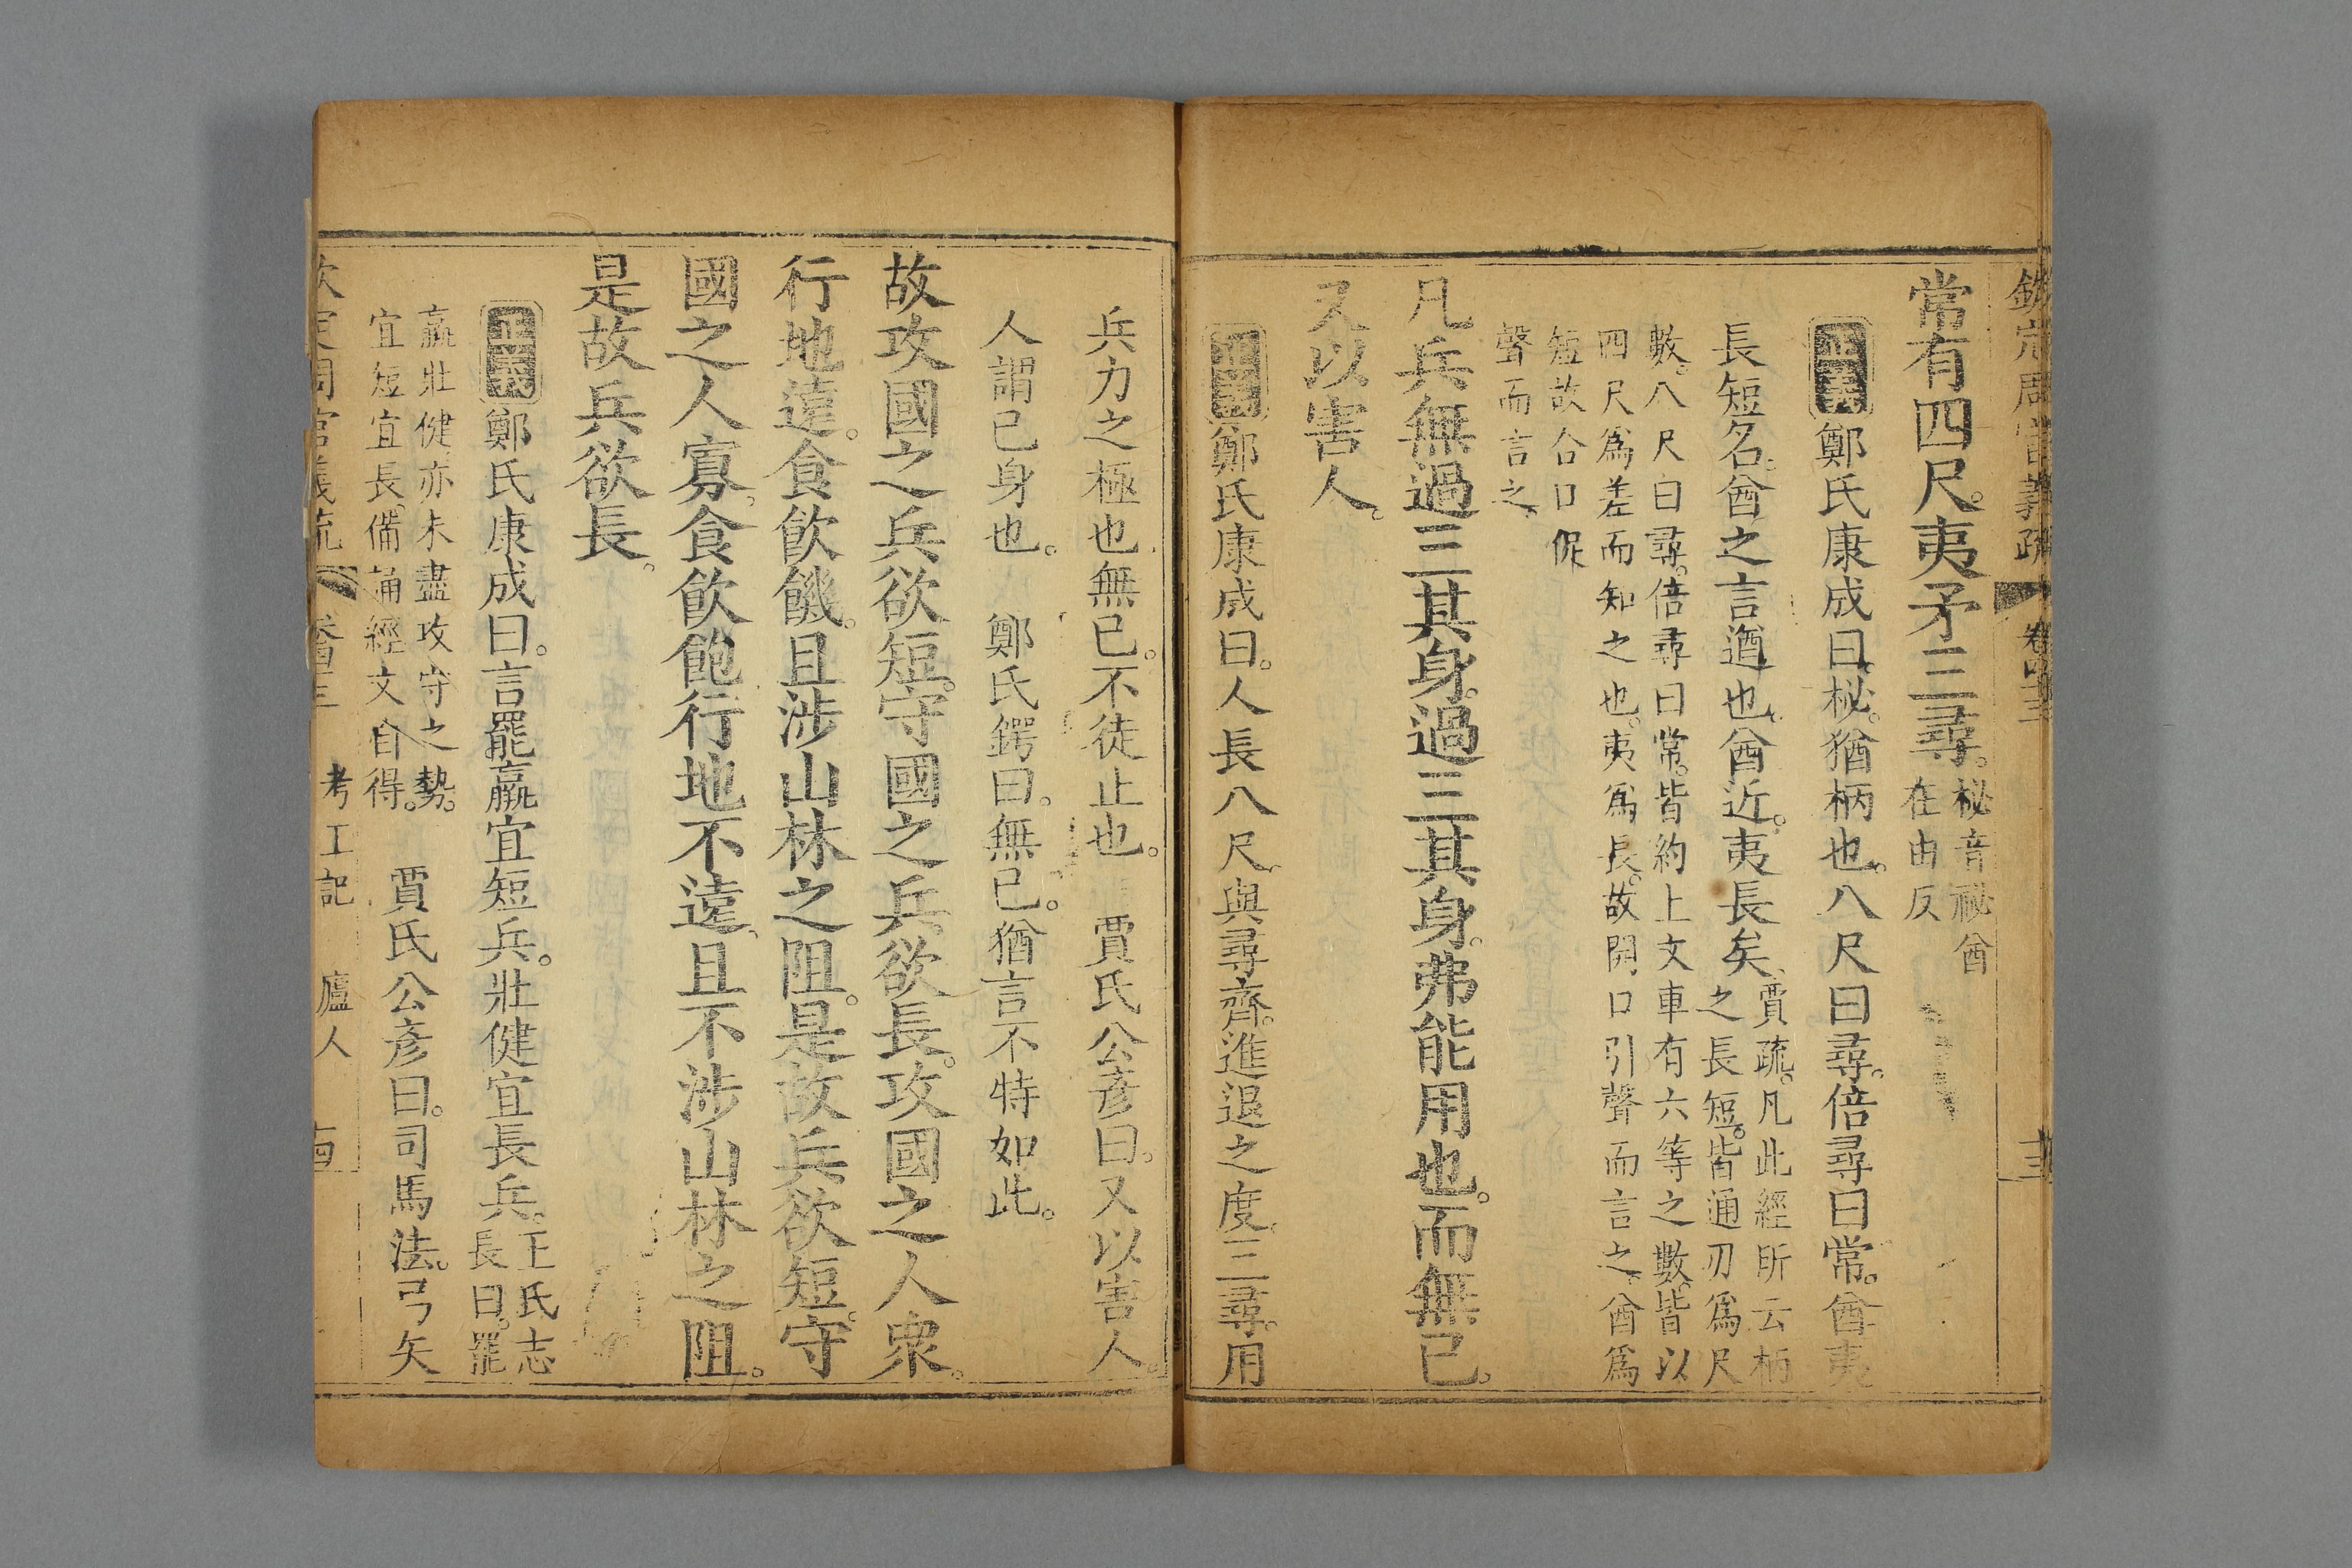 欽定周官義疏 卷四十三
常有四尺。夷矛三尋。柲音祕酋
在由反
正義鄭氏康成曰。柲。猶柄也。八尺曰尋。倍尋曰常。酋夷
長短名。酋之言遒也。酋近。夷長矣。賈疏。凡此經所云柄
之長短。皆通刃爲尺
數。八尺曰尋。倍尋曰常。皆約上文車有六等之數。皆以
四尺爲差而知之也。夷爲長。故開口引聲而言之。酋爲
短故合口促
聲而言之。
凡兵無過三其身。過三其身。弗能用也。而無已。
又以害人。
正義鄭氏康成曰。人長八尺。與尋齊。進退之度。三尋。用
兵力之極也。無已。不徒止也。 賈氏公彥曰。又以害人。
人謂已身也。 鄭氏鍔曰。無已。猶言不特如此。
故攻國之兵欲短。守國之兵欲長。攻國之人衆。
行地遠。食飲饑。且涉山林之阻。是故兵欲短。守
國之人寡。食飲飽。行地不遠。且不涉山林之阻。
是故兵欲長。
正義鄭氏康成曰。言罷羸宜短兵。壯健宜長兵。王氏志
長曰。罷
羸壯健。亦未盡攻守之勢。
宜短宜長。備誦經文自得。
賈氏公彥曰。司馬法。弓矢
欽定周官義疏 卷四十三 考工記 廬人